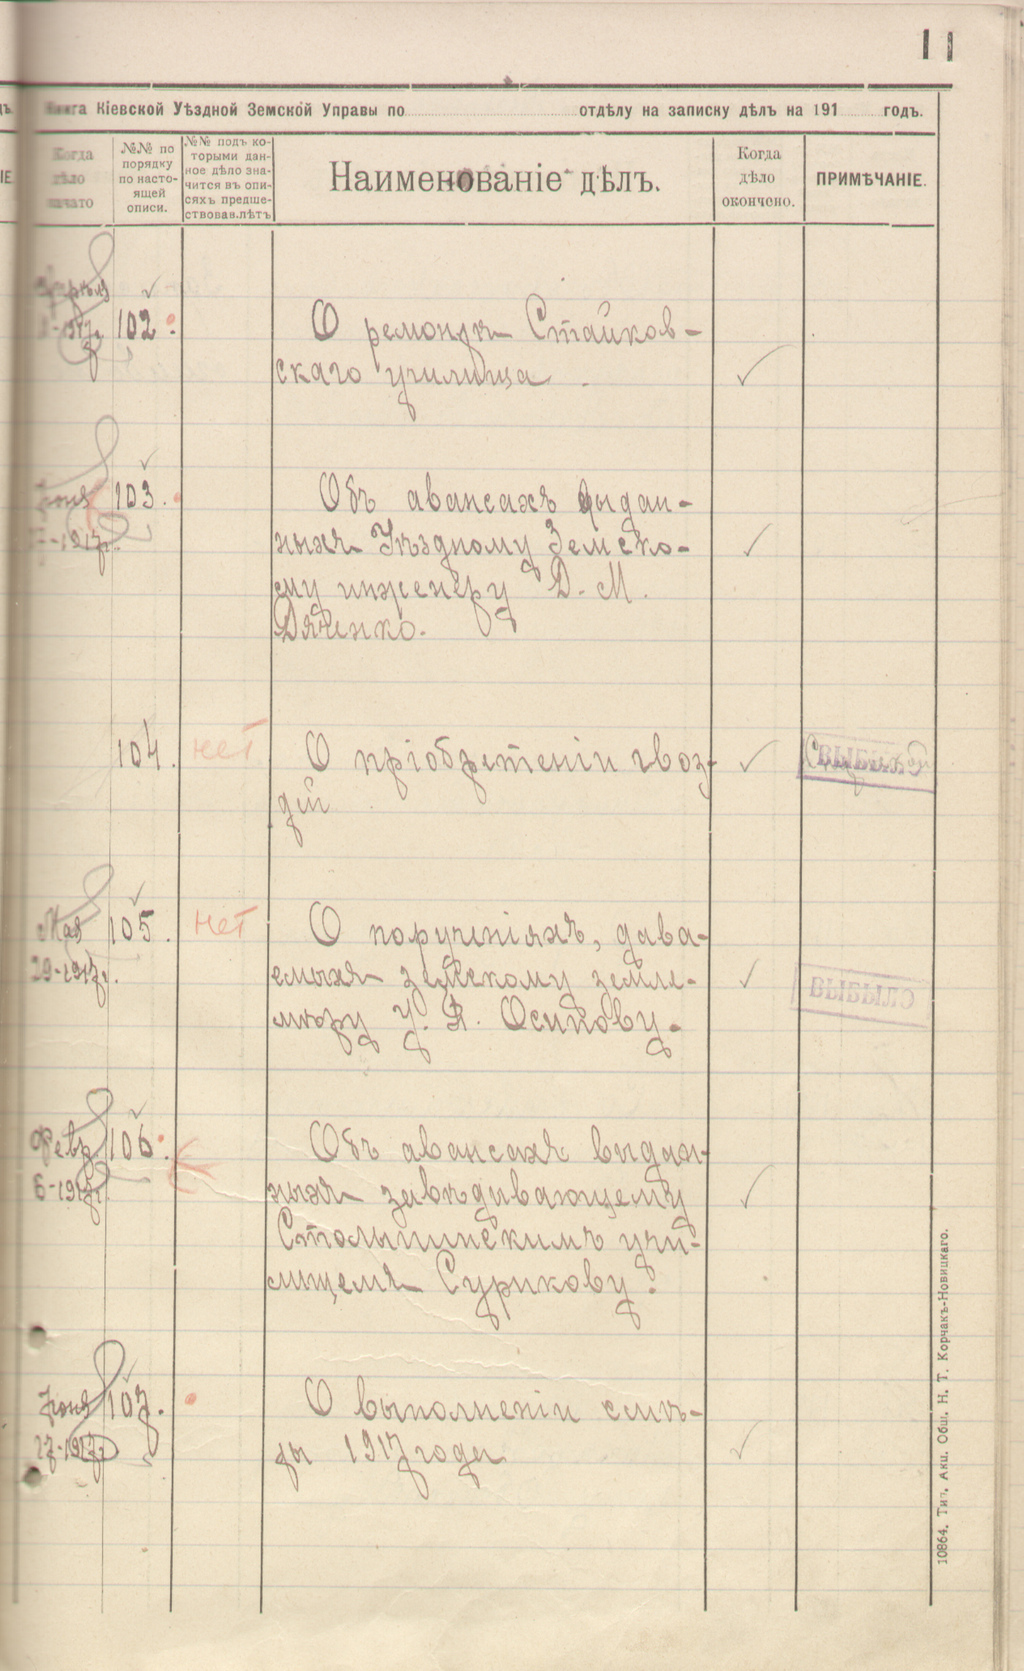 11
Книга Кіевской Уѣздной Земской Управы по отдѣлу на записку дѣлъ на 191 годъ.
Когда
дѣло
начато
№№ по
порядку
по насто-
ящей
описи.
№№ подъ ко-
торыми дан-
ное дѣло зна-
чится въ опи-
сяхъ предше-
ствовав. лѣтъ
Наименованіе дѣлъ.
Когда
дѣло
окончено.
ПРИМѢЧАНІЕ.
102 О ремонтѣ Стайков-
скаго училища
Іюня 103. Объ авансахъ выдан-
ныхъ Уѣздному Земско-
му инженеру Д. М.
Дяченко.
104. нет О пріобретеніи гвоз-
дей
ВЫБЫЛО
Мая 105. нет О порученіяхъ, дава-
29-1917г. емыхъ земскому земле-
мѣру У. Я. Осипову.
ВЫБЫЛО
Февр 106. Объ авансахъ выдан-
6-1917г. ныхъ завѣдивающему
Столыпинскимъ учи-
лищемъ Сурикову.
Іюня 107. О выполненіи смѣ-
27-1917г. ты 1917 года
10864. Тип. Акц. Общ. Н. Т. Корчакъ-Новицкаго.